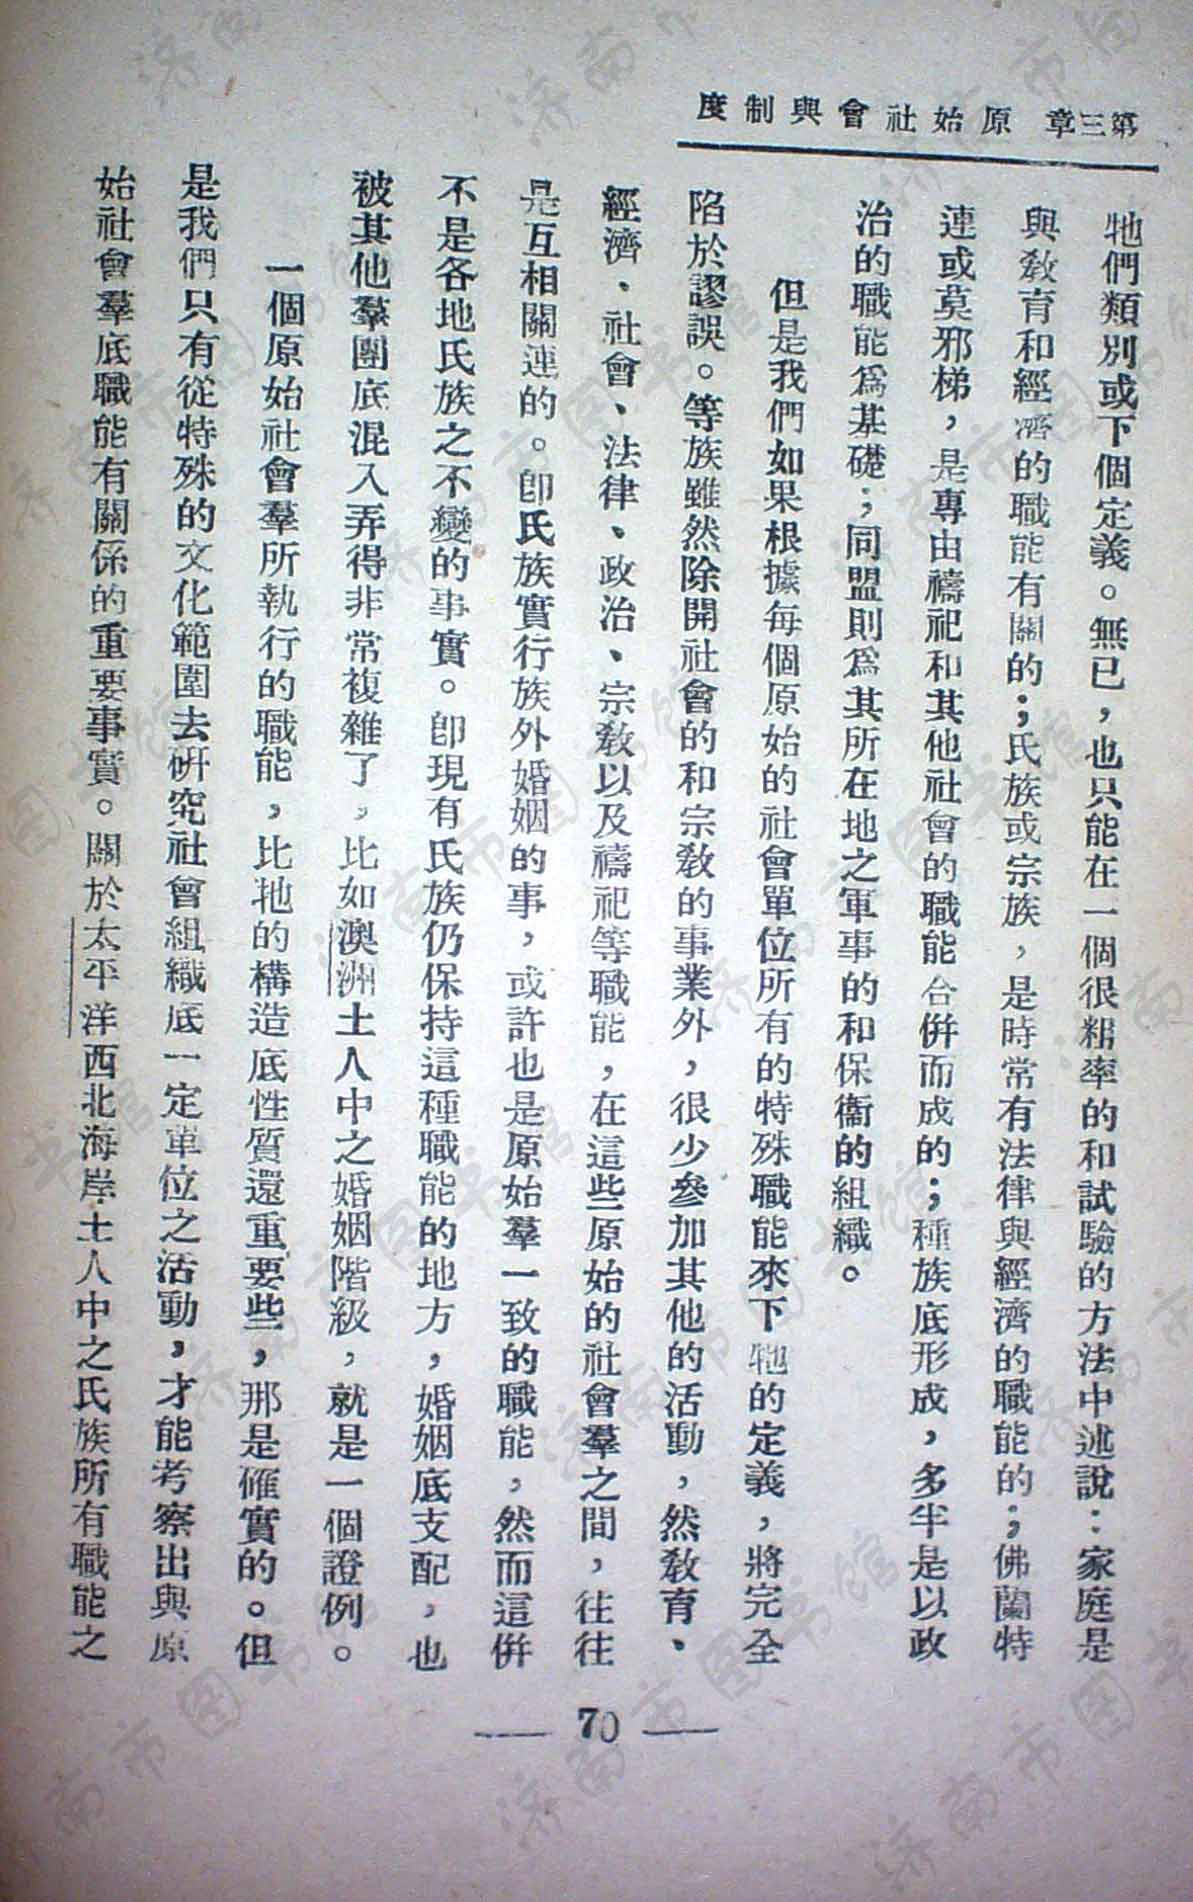 第三章 原始社會與制度
牠們類別或下個定義。無已，也只能在一個很粗率的和試驗的方法中述說：家庭是
與敎育和經濟的職能有關的；氏族或宗族，是時常有法律與經濟的職能的；佛蘭特
連或莫邪梯，是專由禱祀和其他社會的職能合併而成的；種族底形成，多半是以政
治的職能爲基礎；同盟則爲其所在地之軍事的和保衞的組織。
但是我們如果根據每個原始的社會單位所有的特殊職能來下牠的定義，將完全
陷於謬誤。等族雖然除開社會的和宗敎的事業外，很少參加其他的活動，然敎育、
經濟、社會、法律、政治、宗敎以及禱祀等職能，在這些原始的社會羣之間，往往
是互相關連的。卽氏族實行族外婚姻的事，或許也是原始羣一致的職能，然而這併
不是各地氏族之不變的事實。卽現有氏族仍保持這種職能的地方，婚姻底支配，也
被其他羣團底混入弄得非常複雜了，比如澳洲土人中之婚姻階級，就是一個證例。
一個原始社會羣所執行的職能，比牠的構造底性質還重要些，那是確實的。但
是我們只有從特殊的文化範圍去硏究社會組織底一定單位之活動，才能考察出與原
始社會羣底職能有關係的重要事實。關於太平洋西北海岸土人中之氏族所有職能之
70
济南市图书馆